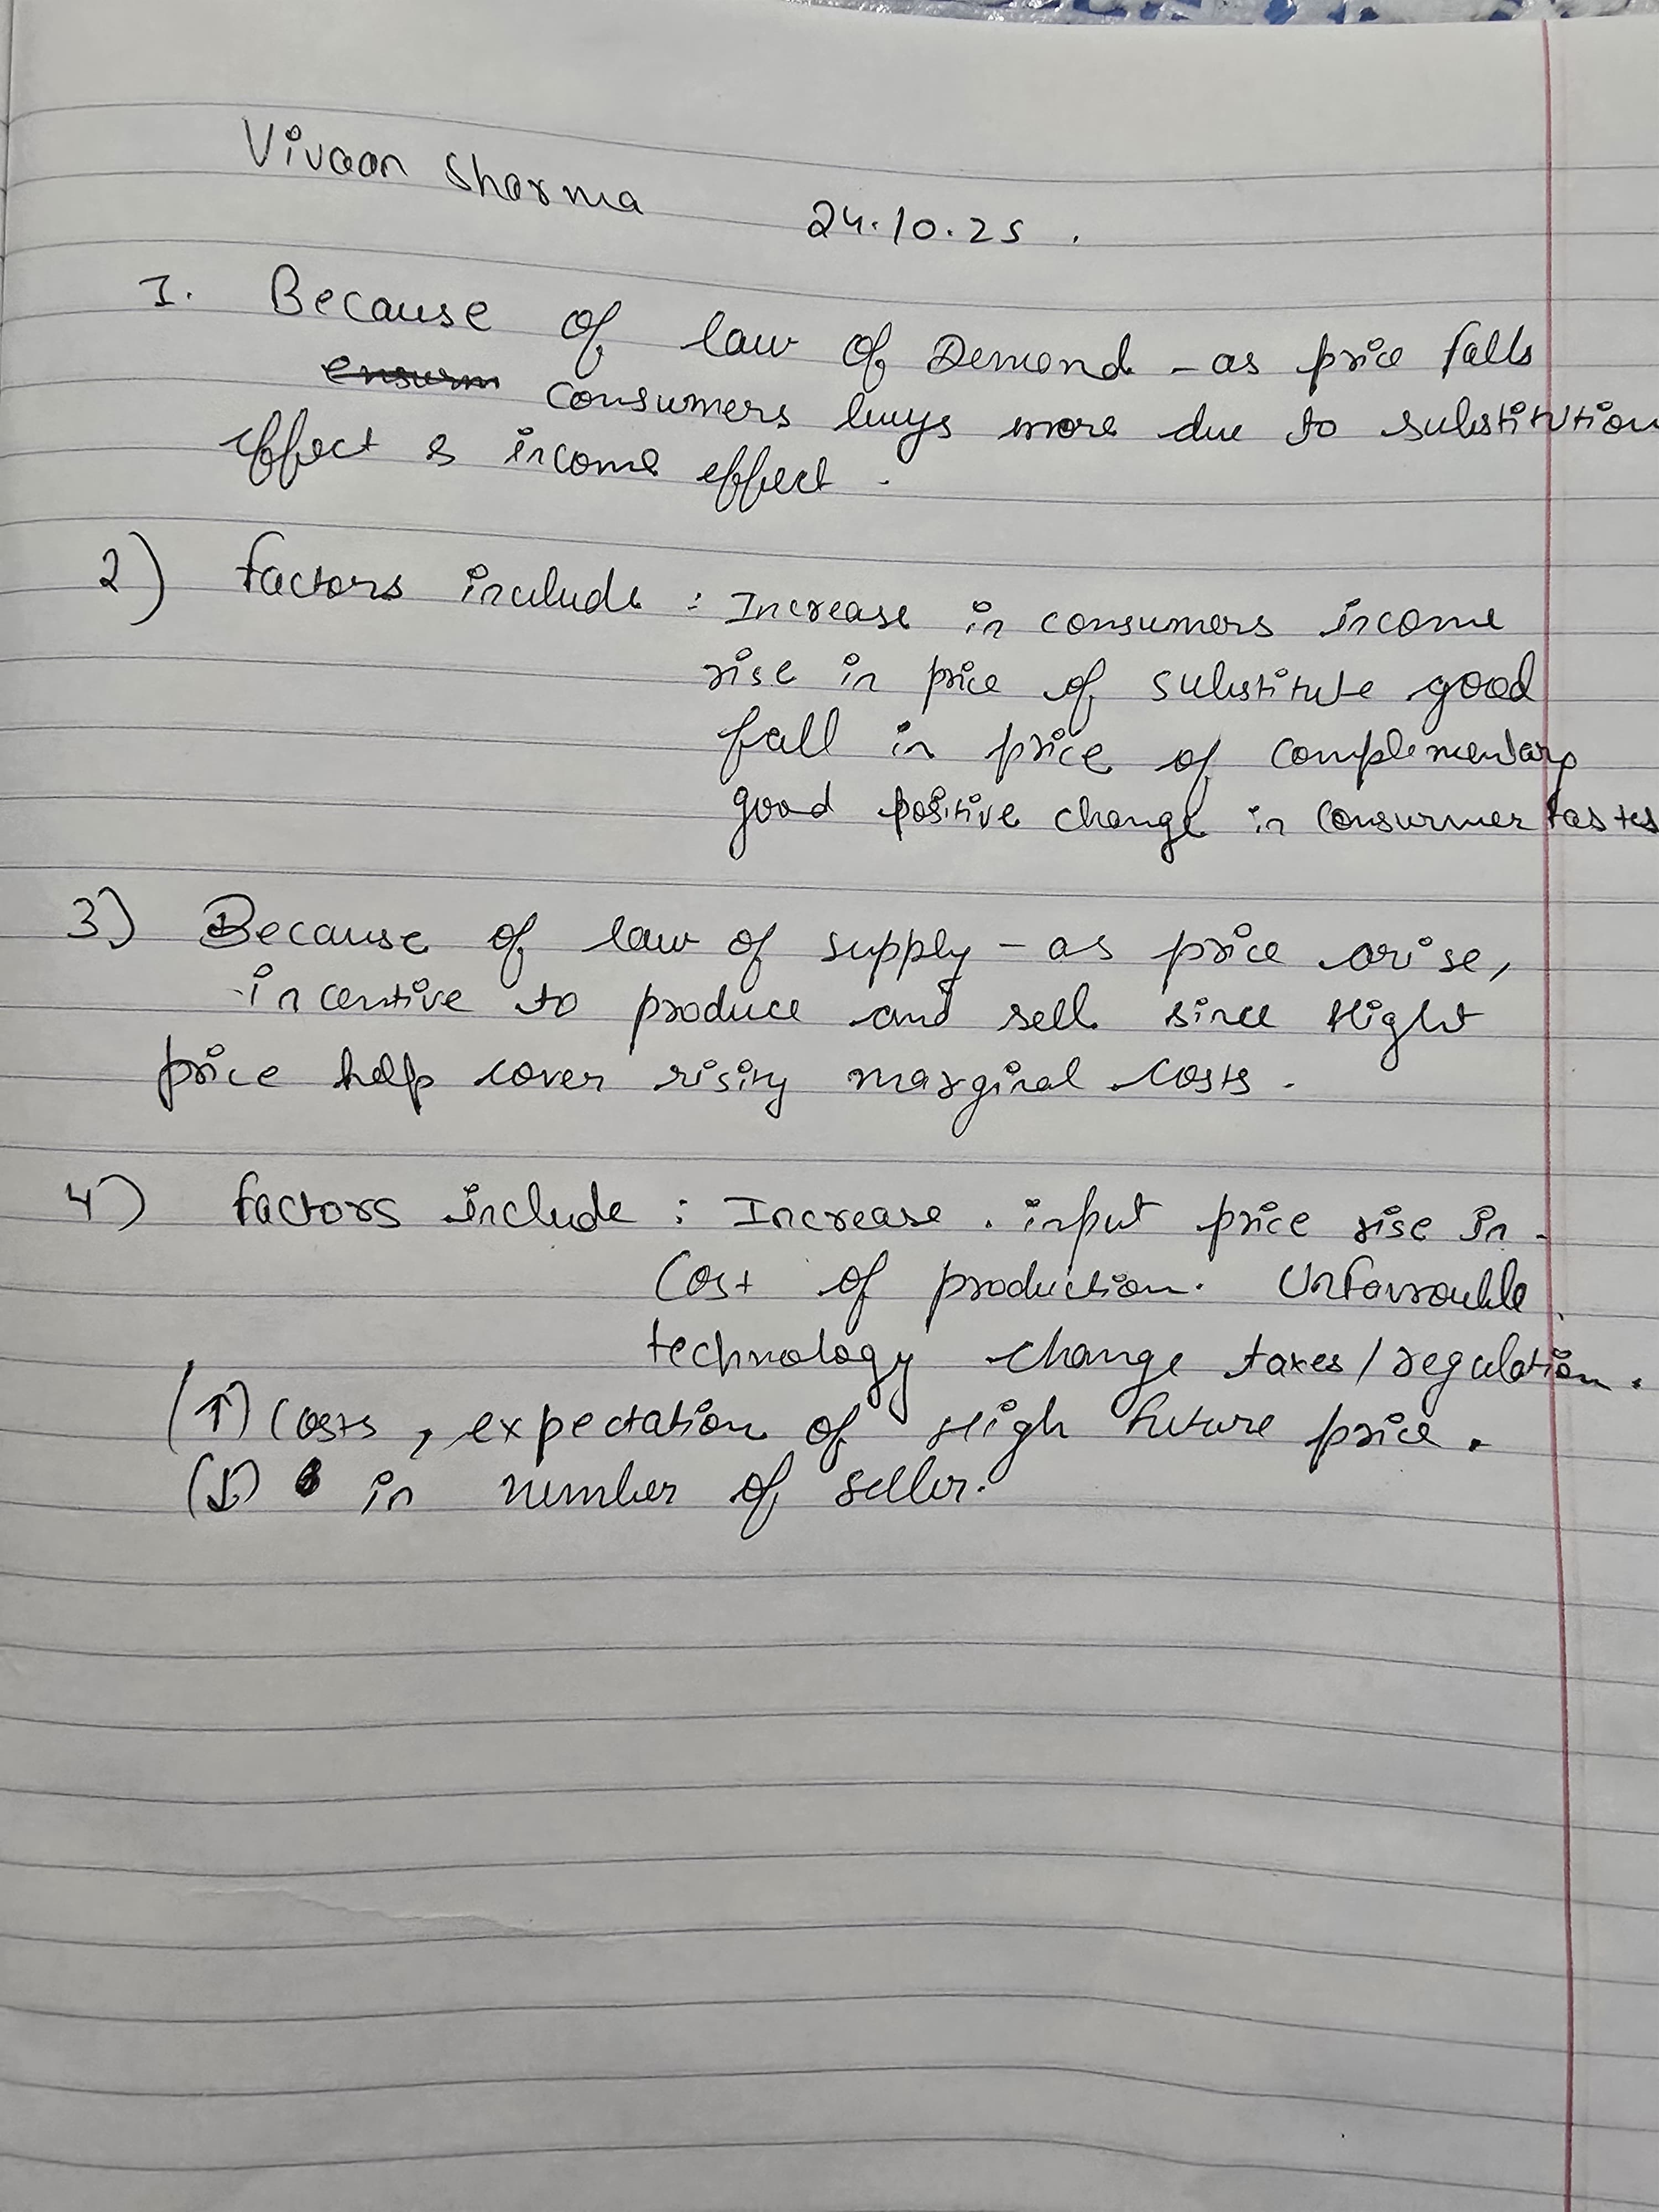 Vivaan Sharma 24.10.25.
I. Because of law of Demand - as price falls
consumers buys more due to substitution
effect & income effect.
2) factors include : Increase in consumers income
rise in price of substitute good
fall in price of complementary
good positive change in consumer tastes
3) Because of law of supply - as price arise,
incentive to produce and sell since Hight
price help cover rising marginal costs.
4) factors include : Increase . input price rise in
Cost of production. Unfavrouble
technology change taxes / regulation.
(↑) Costs , expectation of High future price.
(↓) in number of seller.